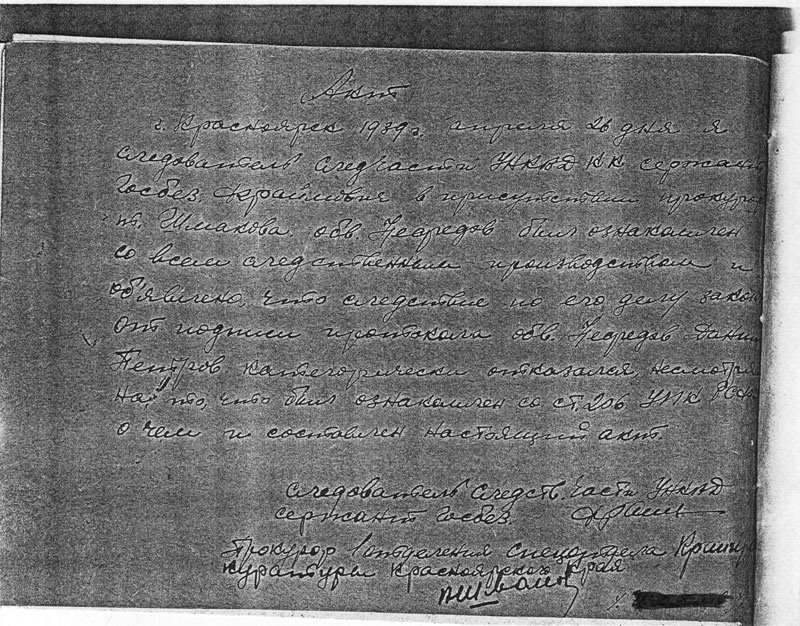 Акт
г. Красноярск 1939 г. апреля 26 дня я
следователь следчасти УНКВД КК сержант
Госбез. в присутствии прокурор
т. Шмакова. обв. Неаредов был ознакомлен
со всем следственным производством и
об'явлено, что следствие по его делу закон
От подписи протокола обв. Неаредов
Петров категорически отказался, несмотря
на то, что был ознакомлен со ст. 206 УПК РСФ
о чем и составлен настоящий акт.
Следователь Следств. части УНКВД
сержант Госбез.
Прокурор отделения Спецотдела
куратуры Красноярского Края